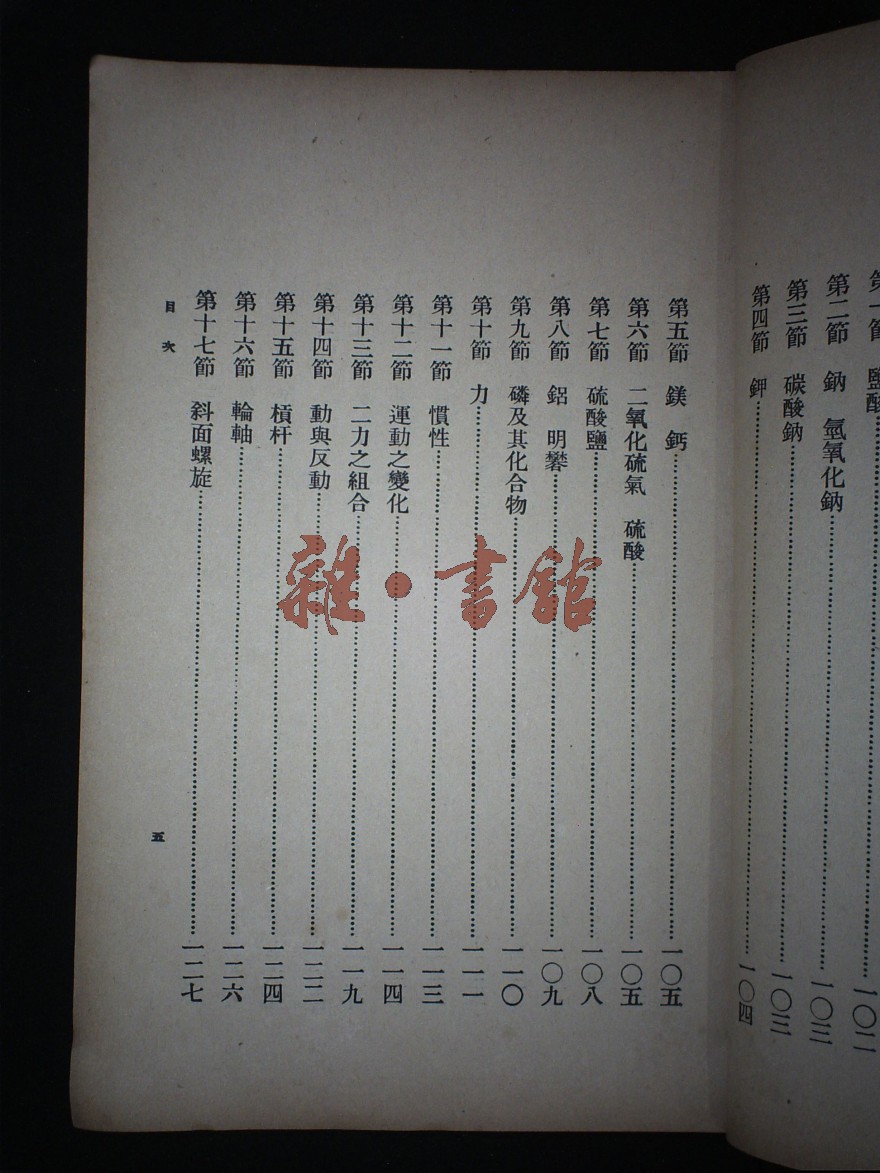 第一節 鹽酸……一〇二
第二節 鈉 氫氧化鈉……一〇三
第三節 碳酸鈉……一〇三
第四節 鉀……一〇四
第五節 鎂 鈣……一〇五
第六節 二氧化硫氣 硫酸……一〇五
第七節 硫酸鹽……一〇八
第八節 鋁 明礬……一〇九
第九節 磷及其化合物……一一〇
第十節 力……一一一
第十一節 慣性……一一三
第十二節 運動之變化……一一四
第十三節 二力之組合……一一九
第十四節 動與反動……一二二
第十五節 槓杆……一二四
第十六節 輪軸……一二六
第十七節 斜面螺旋……一二七
目次
五
雜·書館